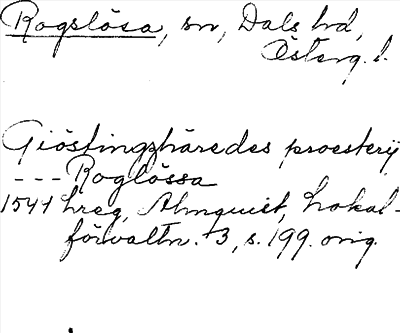 Rogslösa, sn, Dals hd,
Österg. l.
Giöstingshäredes proesterij
--- Roglössa
1541 hreg, Almquist, Lokal-
förvaltn. 3, s. 199. orig.